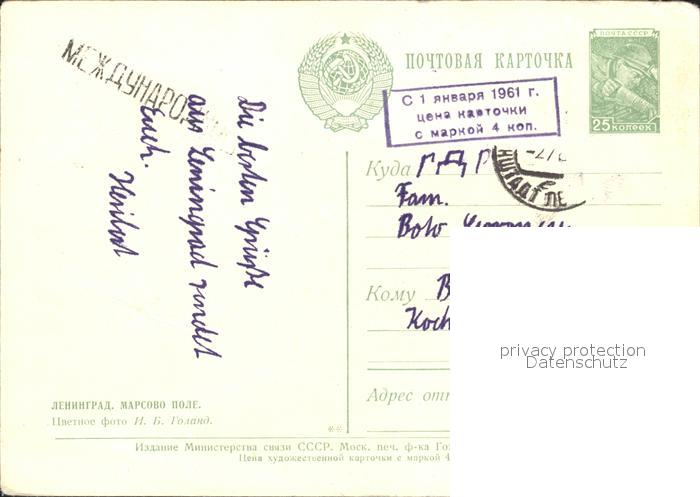 МЕЖДУНАРОД
ПОЧТОВАЯ КАРТОЧКА
ПОЧТА СССР
25 КОПЕЕК
С 1 января 1961 г.
цена карточки
с маркой 4 коп.
Die besten Grüße
aus Leningrad sendet
Euch.
Heribert
Куда ГДР
Fam.
Bolo
Кому B
Koch
Адрес отп
ЛЕНИНГРАД. МАРСОВО ПОЛЕ.
Цветное фото И. Б. Голанд.
Издание Министерства связи СССР. Моск. печ. ф-ка Гоз
Цена художественной карточки с маркой 4
privacy protection
Datenschutz